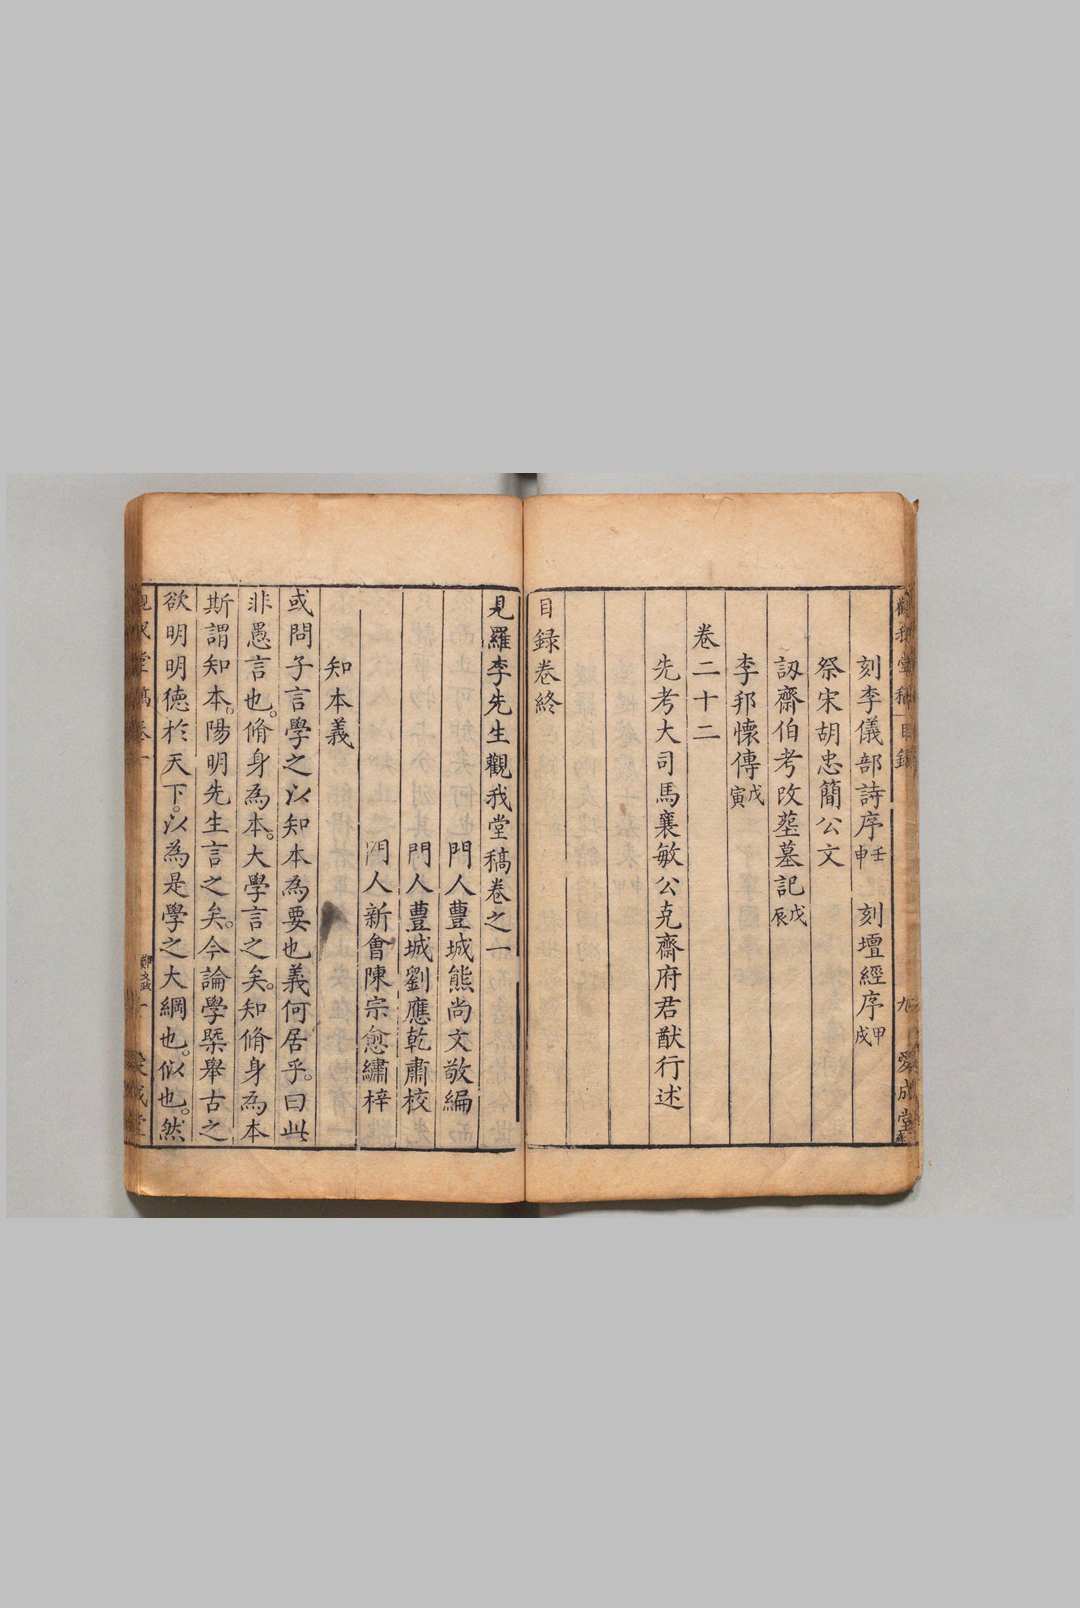 觀我堂稿 目錄 九 愛成堂
刻李儀部詩序壬申 刻壇經序甲戌
祭宋胡忠簡公文
訒齋伯考改塟墓記戊辰
李邦懷傳戊寅
卷二十二
先考大司馬襄敏公克齋府君猷行述
目錄卷終
見羅李先生觀我堂稿卷之一
門人豊城熊尚文敬編
門人豊城劉應乾肅校
門人新會陳宗愈繡梓
知本義
或問子言學之以知本為要也義何居乎曰此
非愚言也脩身為本大學言之矣知脩身為本
斯謂知本陽明先生言之矣今論學槩舉古之
欲明明德於天下以為是學之大綱也似也然